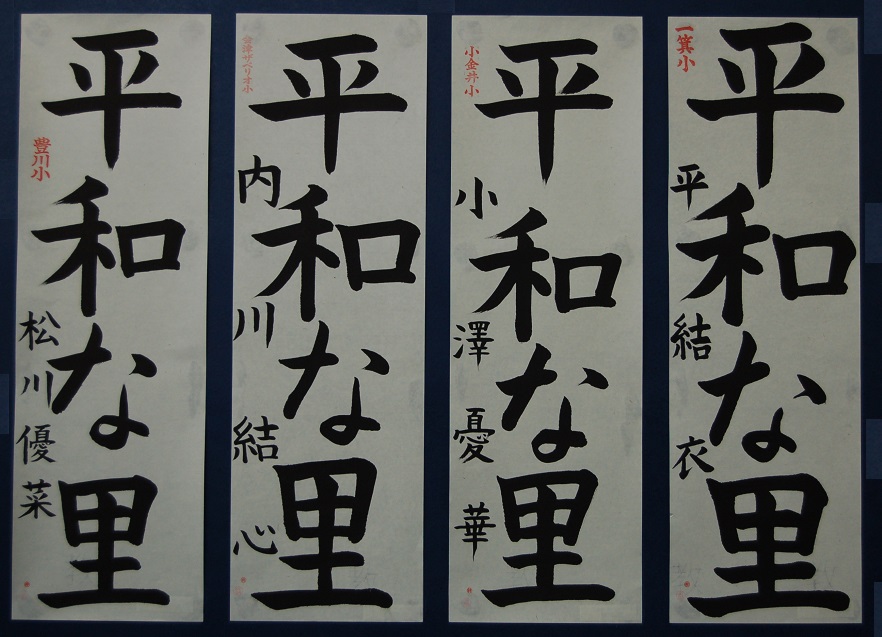 平和な里
一箕小
平結衣
平和な里
小金井小
小澤憂華
平和な里
会津ザベリオ小
内川結心
平和な里
豊川小
松川優菜